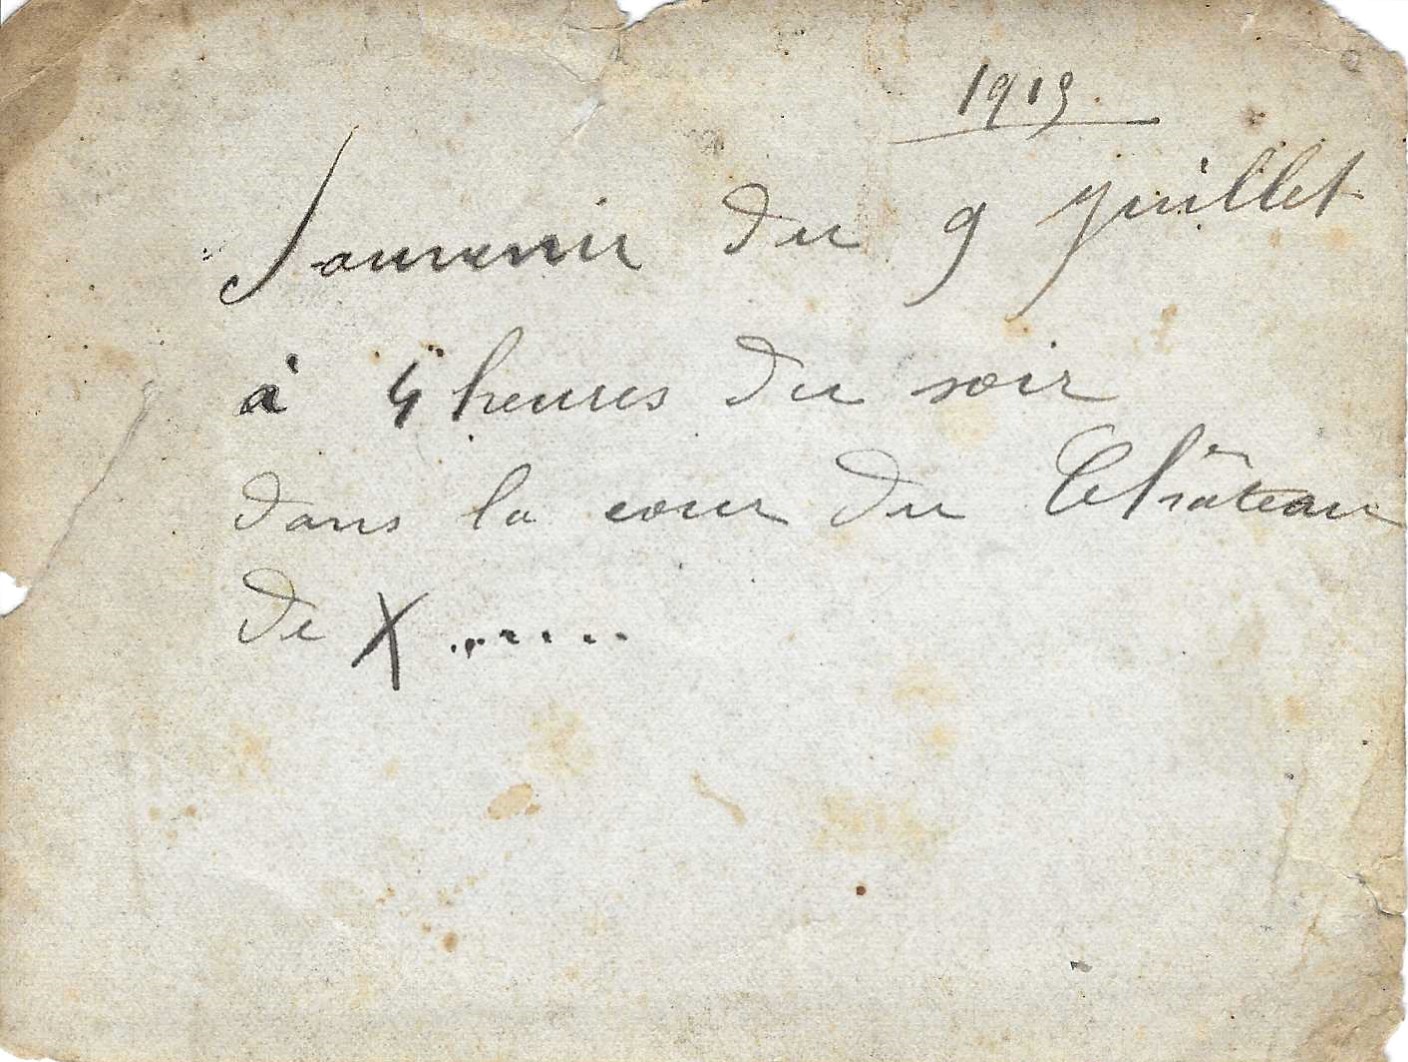 1915
Souvenir du 9 juillet
à 4 heures du soir
dans la cour du Château
de X ......